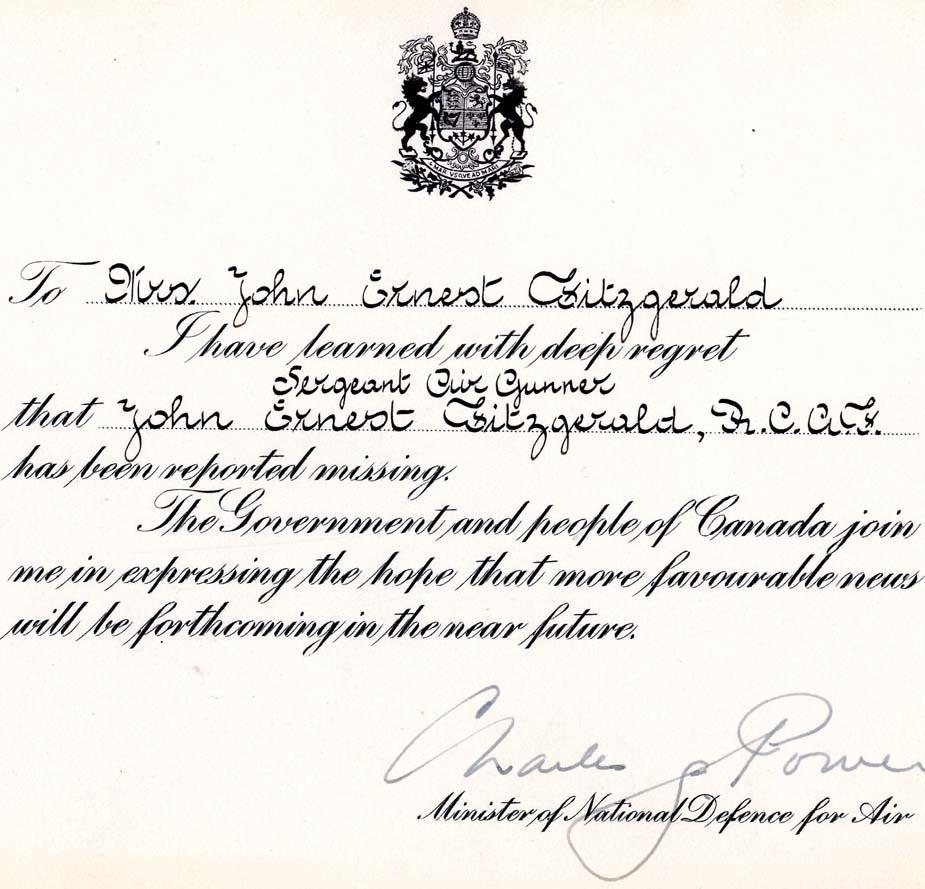 A MARI VSQVE AD MARE
To Mrs. John Ernest Fitzgerald
I have learned with deep regret
Sergeant Air Gunner
that John Ernest Fitzgerald, R.C.A.F.
has been reported missing.
The Government and people of Canada join
me in expressing the hope that more favourable news
will be forthcoming in the near future.
Charles G Power
Minister of National Defence for Air